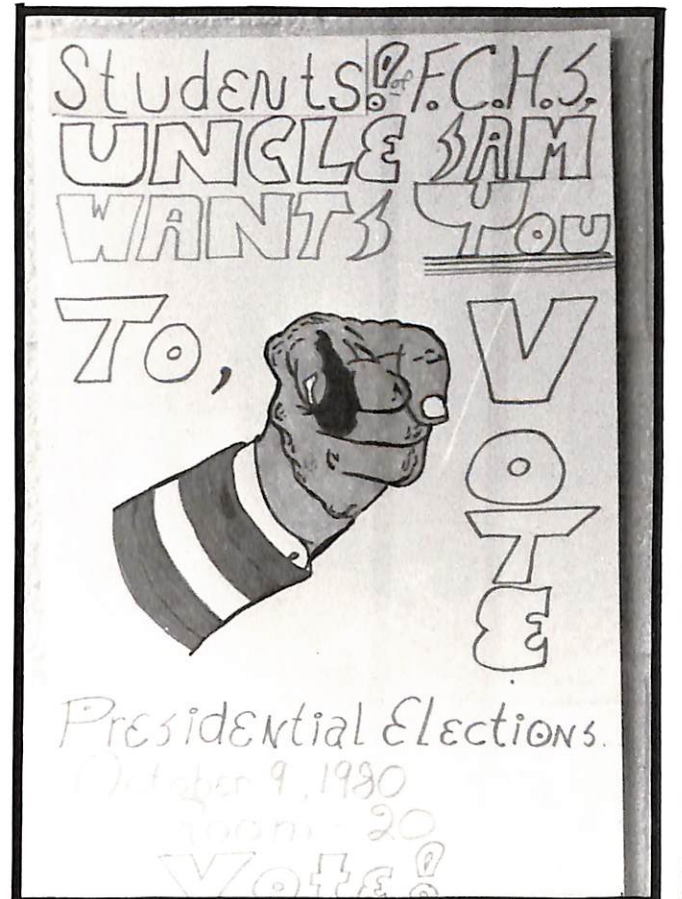 Students! of F.C.H.S.
UNCLE SAM
WANTS YOU
To, VOTE
Presidential Elections.
October 9, 1980
room - 20
Vote!